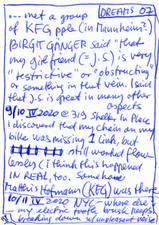 DREAMS 07
... met a group
of KFG ppl. (in Mannheim?.)
BIRGIT GÄNGER said "that
my girlfriend (= J.S.) is very
"restrictive" or "obstructing"
or something in that vein. I said
that J.S. is great in many other
aspects
9/10 IV 2020 @ 319 Shelter in Place
I discovered that my chain on my
bike was missing 1 link, but
still worked flaw-
lessly (i think this happened
IN REAL, too. Somehow
Matthis Hofmann (KFG) was there
10/11 IV 2020 NYC – where else –
my electric tooth brush keeps
breaking down w/ unpleasant noise